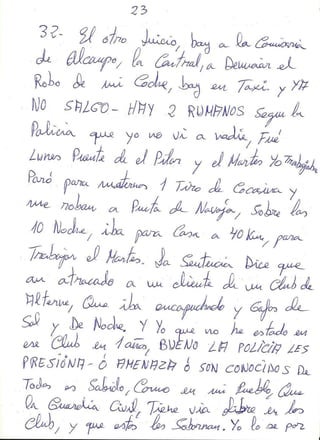 23
32- El otro Juicio, bay a la Comisaria
de Alcampo, la Central, a Denunciar el
Robo de mi Coche, bay en Taxi y YA
NO SALGO - HAY 2 RUMANOS Segun la
Policia que yo no vi a nadie, Fué
Lunes Puente de el Pilar y el Martes Yo Trabajaba
Paró para meternos 1 Tiro de Cocaina y
me roban a Punta de Navaja, Sobre las
10 Noche, iba para Casa a 40 Km, para
Trabajar el Martes. La Sentencia Dice que
an atracado a un cliente de un Club de
Alterne, Que iba encapuchado y Gafas de
Sol y De Noche. Y Yo que no he estado en
ese Club en 1 años, BUENO LA POLICIA LES
PRESIONA - Ó AMENAZA Ó SON CONOCIDOS De
Todos es Sabido, Como en mi Pueblo, Que
la Guardia Civil, Tiene via Libre en los
Club, y que estos les Sobornan. Yo lo se por